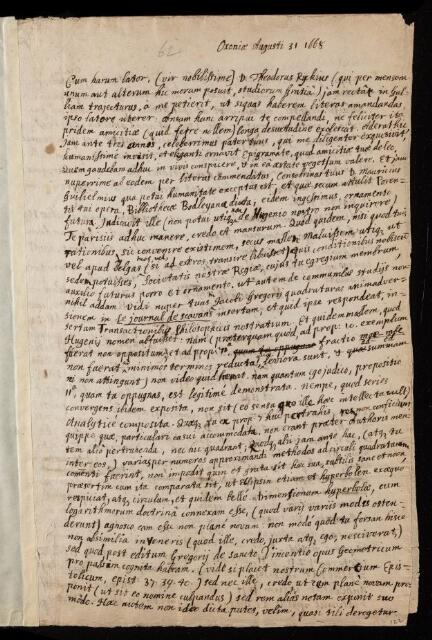 62
Oxoniæ Augusti 31 1668
Cum harum lator, (vir nobilissime) D. Theodorus Ryckius (qui per mensem
unum aut alterum hic moram posuit, studiorum gratiâ) jam rectâ in Gal-
liam trajecturus, à me petierit, ut siquas haberem literas amandandas
ipso latore uterer: ansam hanc arripui te compellandi, ne feliciter ita
pridem amicitiæ (quod ferre nollem) longa desuetudine exolescat.
jam ante tres annos, celeberrimus pater tuus, qui me diligenter exquisivit,
humanissime invisit, et eleganti ornavit Epigramate, quod amicitiæ tuæ debeo,
Quem gaudeam adhuc in vivis conspicere, et in eâ ætate vegetum valere. Et jam
nuperrime ab eodem per literas commendatus, consobrinus tuus D. Mauricius
Guilielmius quâ potui humanitate exceptus est, et quæ secum attulit Teren-
tii tui opera, Bibliothecæ Bodleyanæ data, eidem ingessimus, ornamento
futura. Indicavit ille (non potui utique de Hugenio nostro non inquirere)
Te parisiis adhuc manere, credo et mansurum. Quod quidem, nisi quod tuis
rationibus, sic convenire existimem, secus mallem. Maluissem utique ut
vel apud Belgas vel apud nos, (si ad extros transire libuisset) quis conditionibus nobiscum
sedem posuisses, Societatis nostræ Regiæ, cujus tu egregium membrum,
auxilio futurus porro et ornamento. ut autem de communibus studijs non
nihil addam. Vidi nuper tuas Jacobi Gregorij quadraturas animadver-
siones in Le journal de scavans insertam, et quod ipse respondeat, in-
sertum Transactionibus Philosophicis nostratium. Et quidem mallem, quod
Hugenij nomen abfuisset. nam (præterquam quod ad prop: 10. exemplum
fuerat non oppositum; et ad prop: 11.
non fuerat, ad minimos terminos reducta; leviora sunt, et quæ summam
rei non attingunt) non video quod, quantum ego judico, propositio
11ª, quam tu oppugnas, est legitime demonstrata. nempe, quod series
convergens ibidem exposita, non sit (eo sensu quo ille hæc intellecta vult)
Analytice composita.
quippe quæ, particulari casui accommodata, non erant præter Authoris men-
tem alio pertrahenda, nec hic quadrant. Quodque alii jam ante hac, (atque tu
inter eos,) varias per numeros approximandi methodos ad circuli quadraturam
comenti fuerint, non impedit quin et grata sit hæc sua, subtilis sane et nova,
præsertim cum ita comparata sit, ut Ellipsin etiam et hyperbolen exæquo
respiciat, atque circulum, et quidem belle dimensionem hyperbolæ, cum
logarithmorum doctrinâ connexam esse, (quod varij varijs modis osten-
derunt) agnosco eam esse non plane novam. non modo quod tu forsan hisce
non absimilia inveneris (quod ille, credo, juxta atque ego, nesciverat,)
sed quod post editum Gregorij de Sancto Vincentio opus Geometricum
pro passim cognita habeam. (vide si placet nostrum Commercium Epis-
tolicum, epist. 37. 39. 40.) sed nec ille, credo ut rem plane novam pro-
ponit (ut sit eo nomine culpandus) sed rem aliàs notam exponit suo
modo. Hæc autem non ideo dicta putes, velim, quasi tibi derogetur